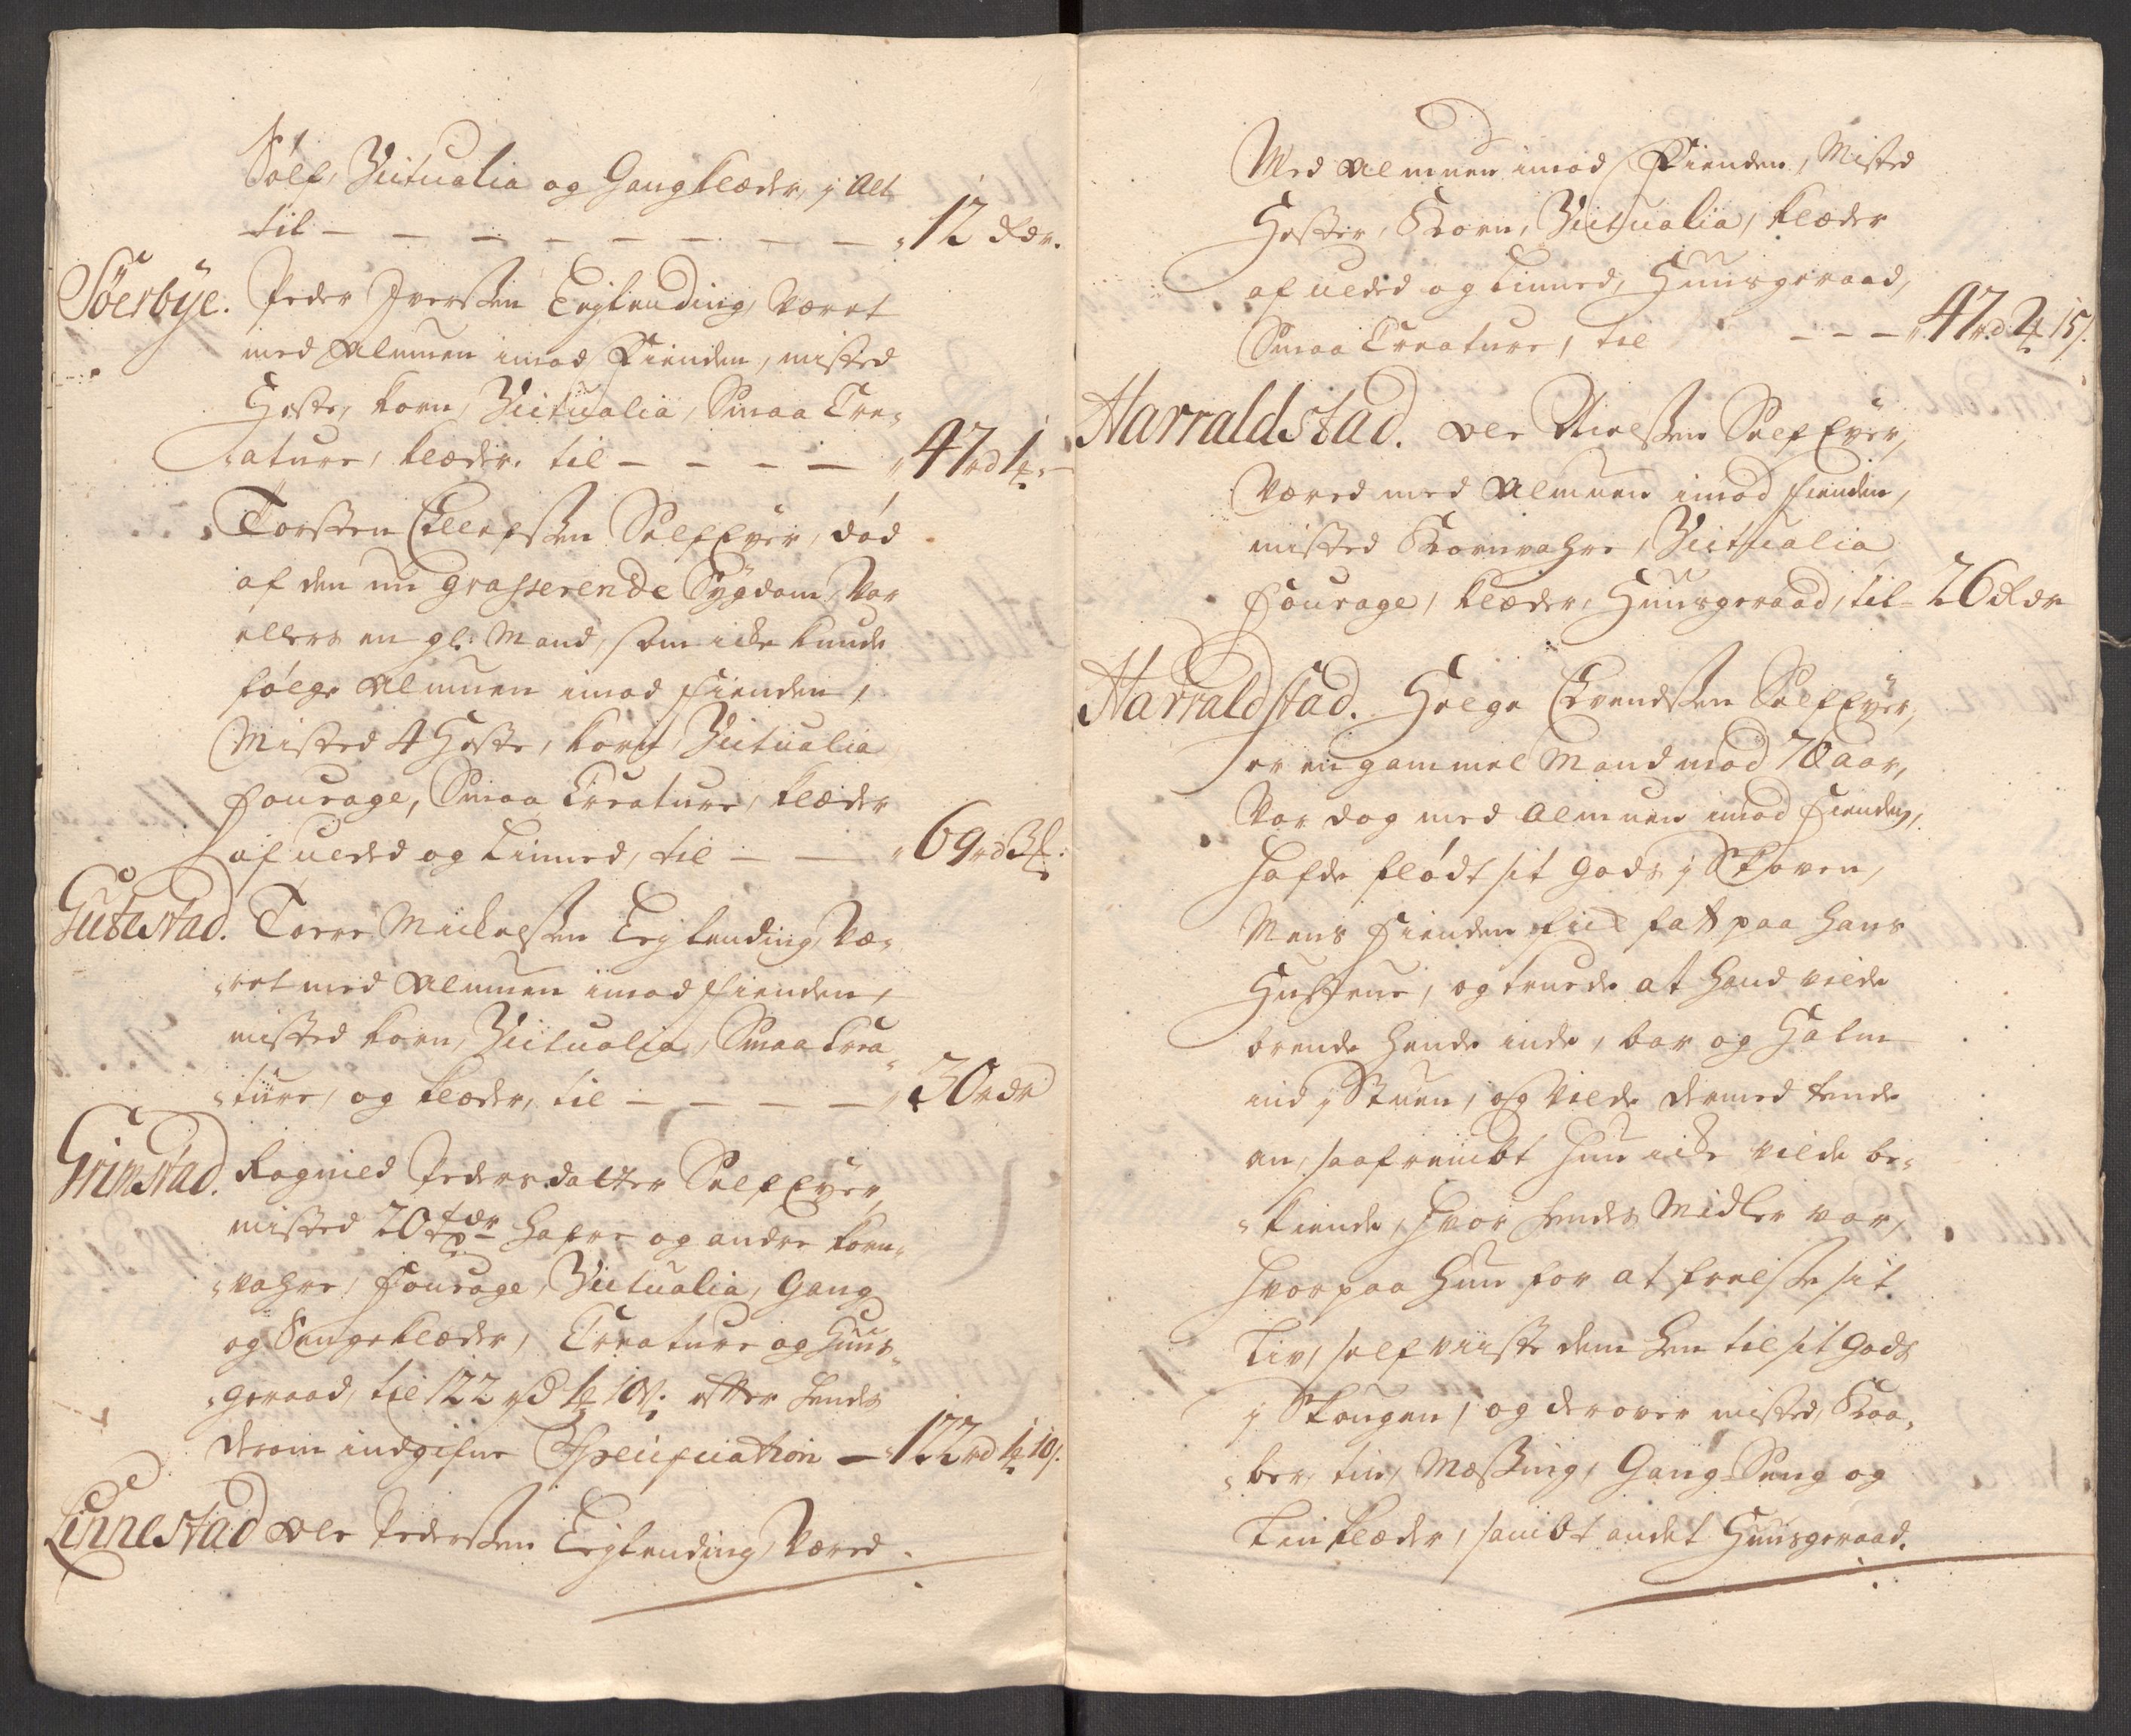 Sölf, Victualia og Gangklæder, j alt
til — — — — — — — — „12 rdr.
Söerbÿe. Peder Iverssen Leylending, Været
med Almuen imod Fienden, misted
Hæste, korn, Victualia, Smaa Crea„
„ature, klæder, til — — — — „47 rd 1 ¤ „—
Torsten Ellefssen Self Eyer, död
af den nu grasserende Sÿgdom, Var
ellers en gl: Mand, som icke kunde
følge Almuen imod fienden,
Misted 4 Heste, korn, Victualia
fourage, Smaa Creature, klæder
af uldet og Linned, til — — „69 rd 3 ¤.
Gutestad. Torre Mickelssen Leylending, Væ„
„ret med Almuen imod fienden,
misted korn, Victualia, Smaa Crea„
„ture, og klæder, til — — — — „30 rdr
Grimstad. Ragnild Pedersdatter Self Eyer,
misted 20 tdr hafre og andre korn„
„vahre, fourage, Victualia, Gang
og Sengeklæder, Creature og Huus„
„geraad, til 122 rd 1 ¤ 10 s: efter hendes
derom indgifne Specification — „122 rd 1 ¤ 10 s.
Linnestad Ole Pederssen Leylending, Væred
Med Almuen imod Fienden, Misted
Hester, Korn, Victualia, klæder
af ulded og Linned, Huusgeraad,
Smaa Creature, til — — — „47 rd 2 ¤ 15 s.
Harraldstad. Ole Nielssen Self Eyer,
Været med Almuen imod fienden,
misted Kornvahre, Victualia
fourage, klæder, Huusgeraad, til 26 rdr
Harraldstad. Helge Evendssen Self Eyer,
er en gammel Mand mod 70 aar,
Var dog med Almuen imod fienden,
hafde flödt sit Gods j Skoven,
Mens fienden fick fatt paa hans
Hustrue, og truede at hand vilde
brende hende inde, bar og Halm
ind j Stuen, og Vilde dermed tende
an, saafremt hun icke vilde be„
„kiende, hvor hendes Midler var,
hvorpaa hun for at frelsse sit
Liv, self viiste dem hen til sit Gods
j Skougen, og derover misted, Kaa„
„ber, tin, Messing, Gang Seng og
Linklæder, sambt andet Huusgeraad.